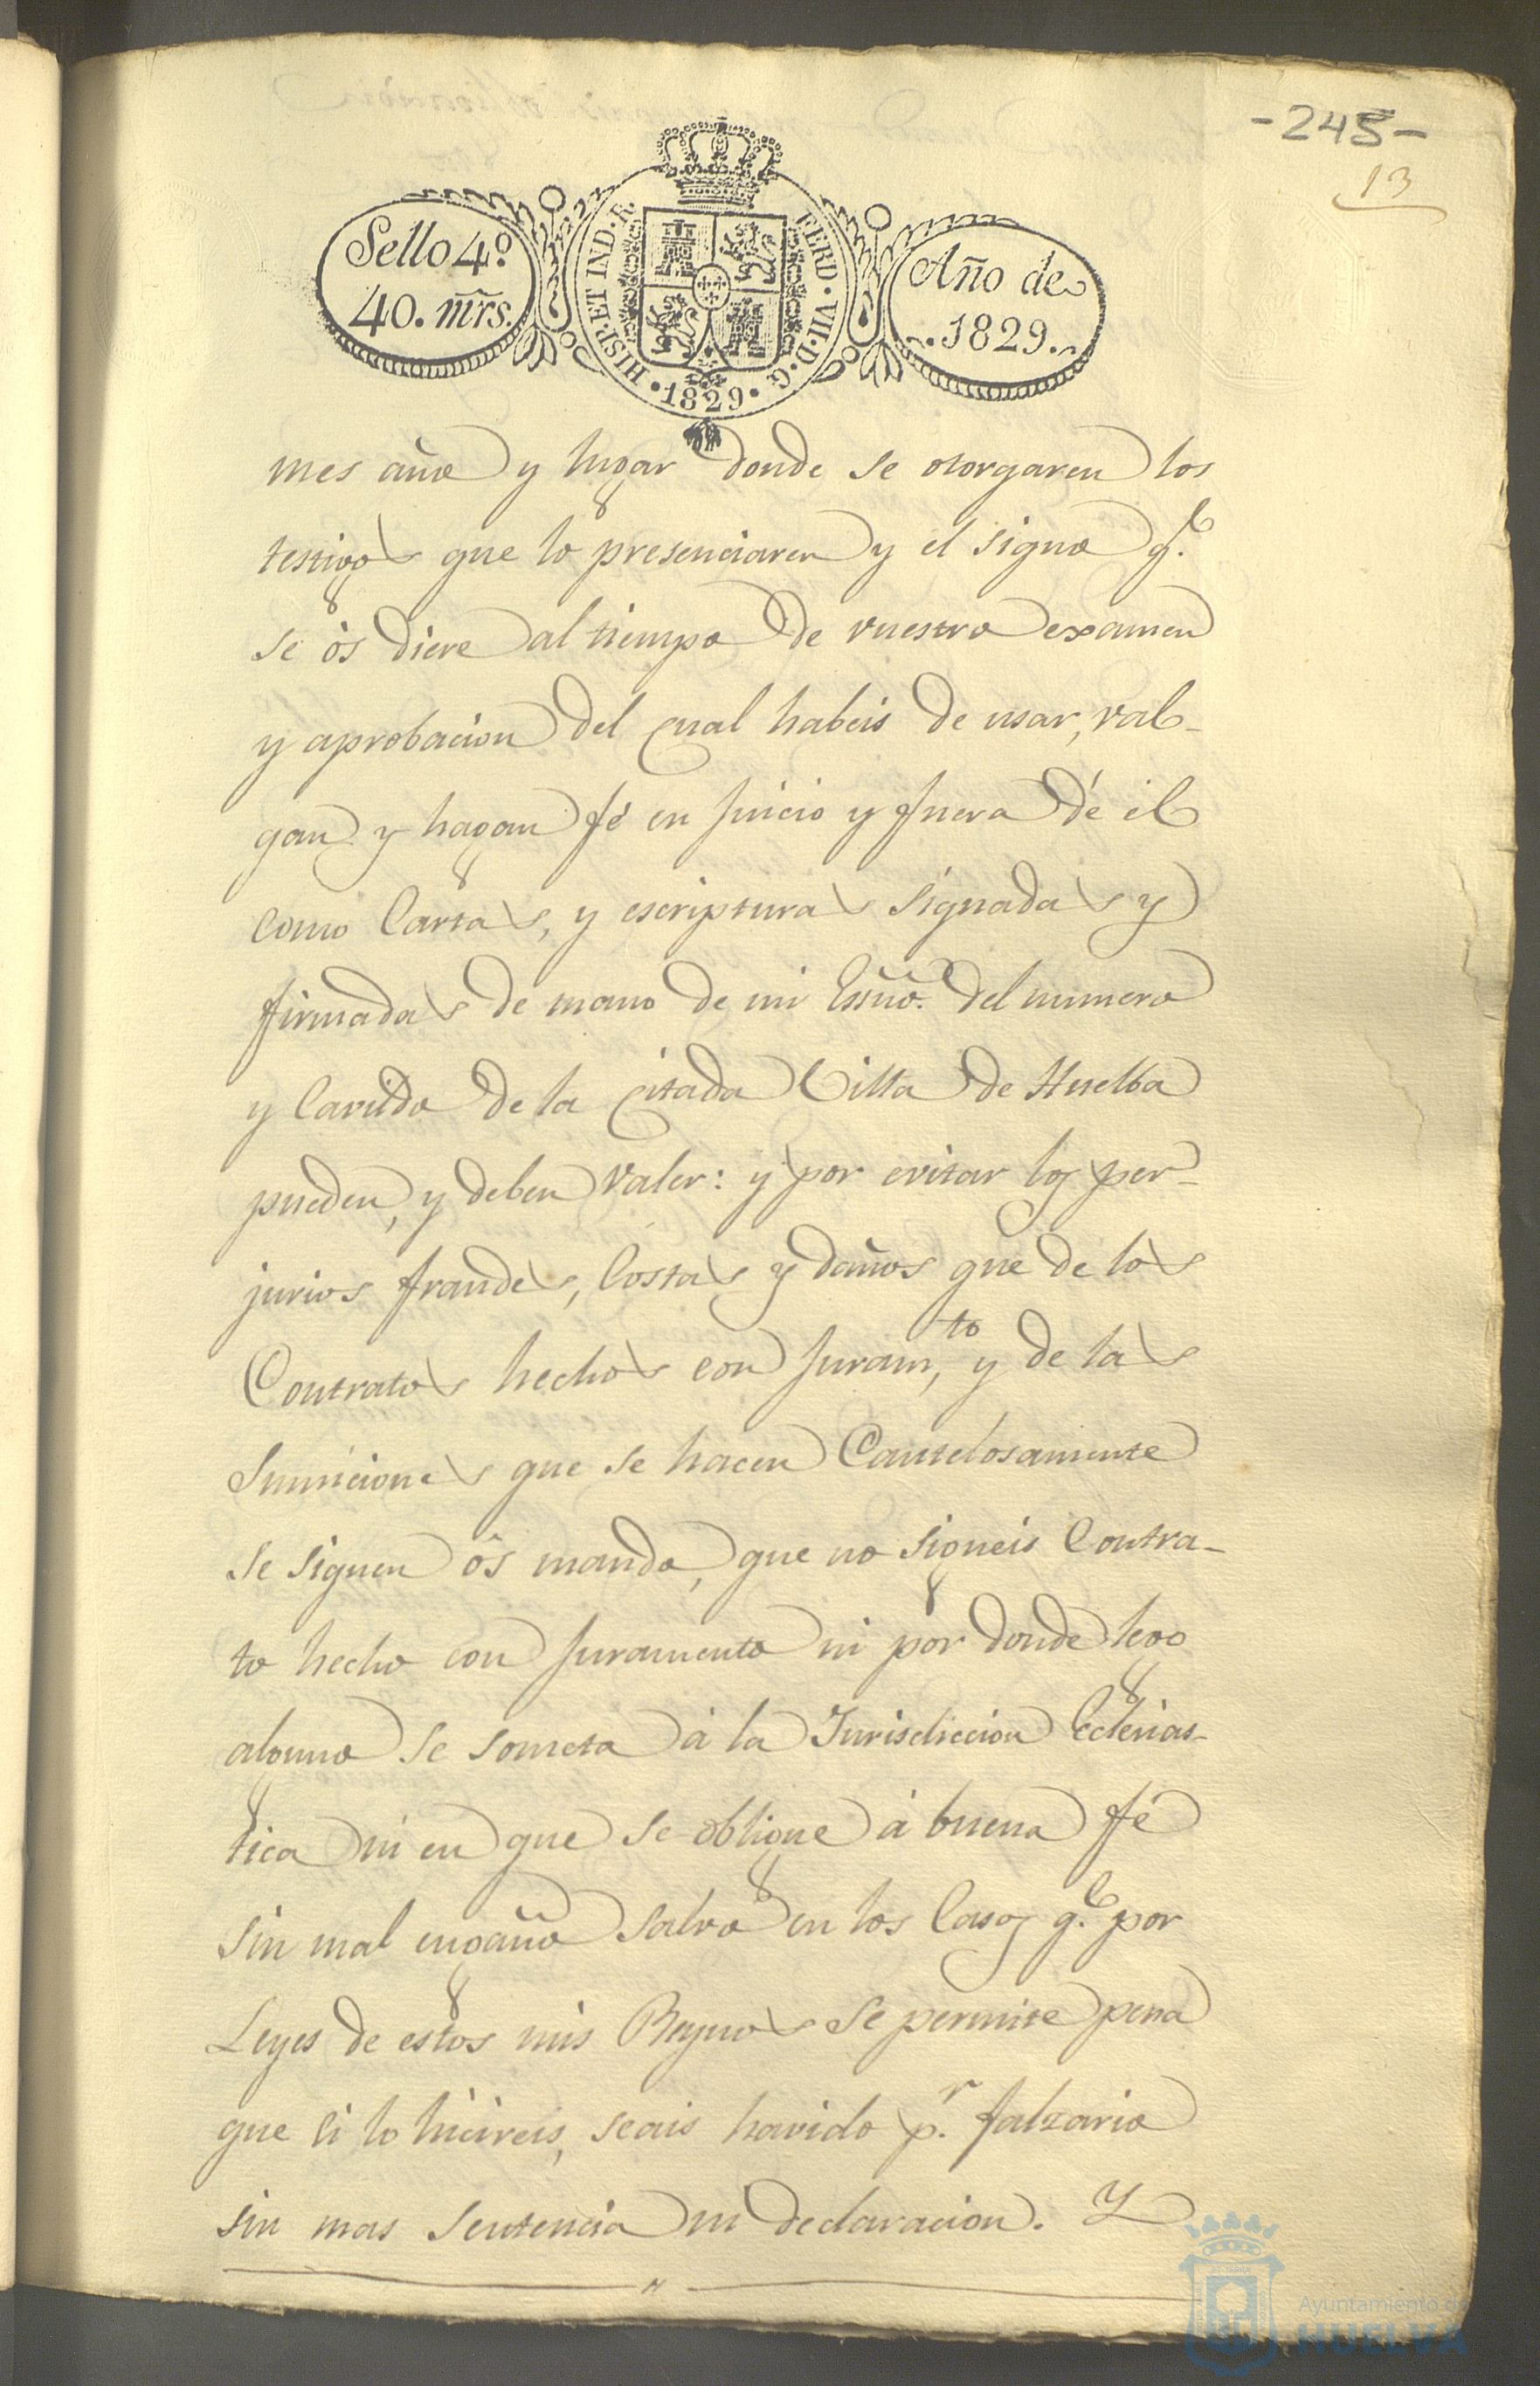 -245-
13
Sello 4.º
40. mrs.
HISP. ET IND. R.
FERD. VII. D. G.
1829
Año de
1829.
mes año y lugar donde se otorgaren los
testigos que lo presenciaren y el signo q.e
se òs diere al tiempo de vuestro examen
y aprobacion del cual habeis de usar, val-
gan y hagan fé en Juicio y fuera dé èl
como Cartas, y escripturas signadas y
firmadas de mano de mi Essno. del numero
y Cavildo de la Citada Villa de Huelba
pueden, y deben valer: y por evitar los per-
jurios fraudes, Costas y daños que de los
Contratos hechos con Juram,to y de las
Sumiciones que se hacen Cautelosamente
se siguen òs mando, que no signeis Contra-
to hecho con Juramento ni por donde lego
alguno se someta à la Jurisdiccion Eclesias-
tica ni en que se obligue à buena fé
sin mal engaño salvo en los Casos q.e por
Leyes de estos mis Reynos se permite pena
que si lo hicireis, seais havido p.r falzario
sin mas sentencia ni declaracion. Y
Ayuntamiento de
HUELVA